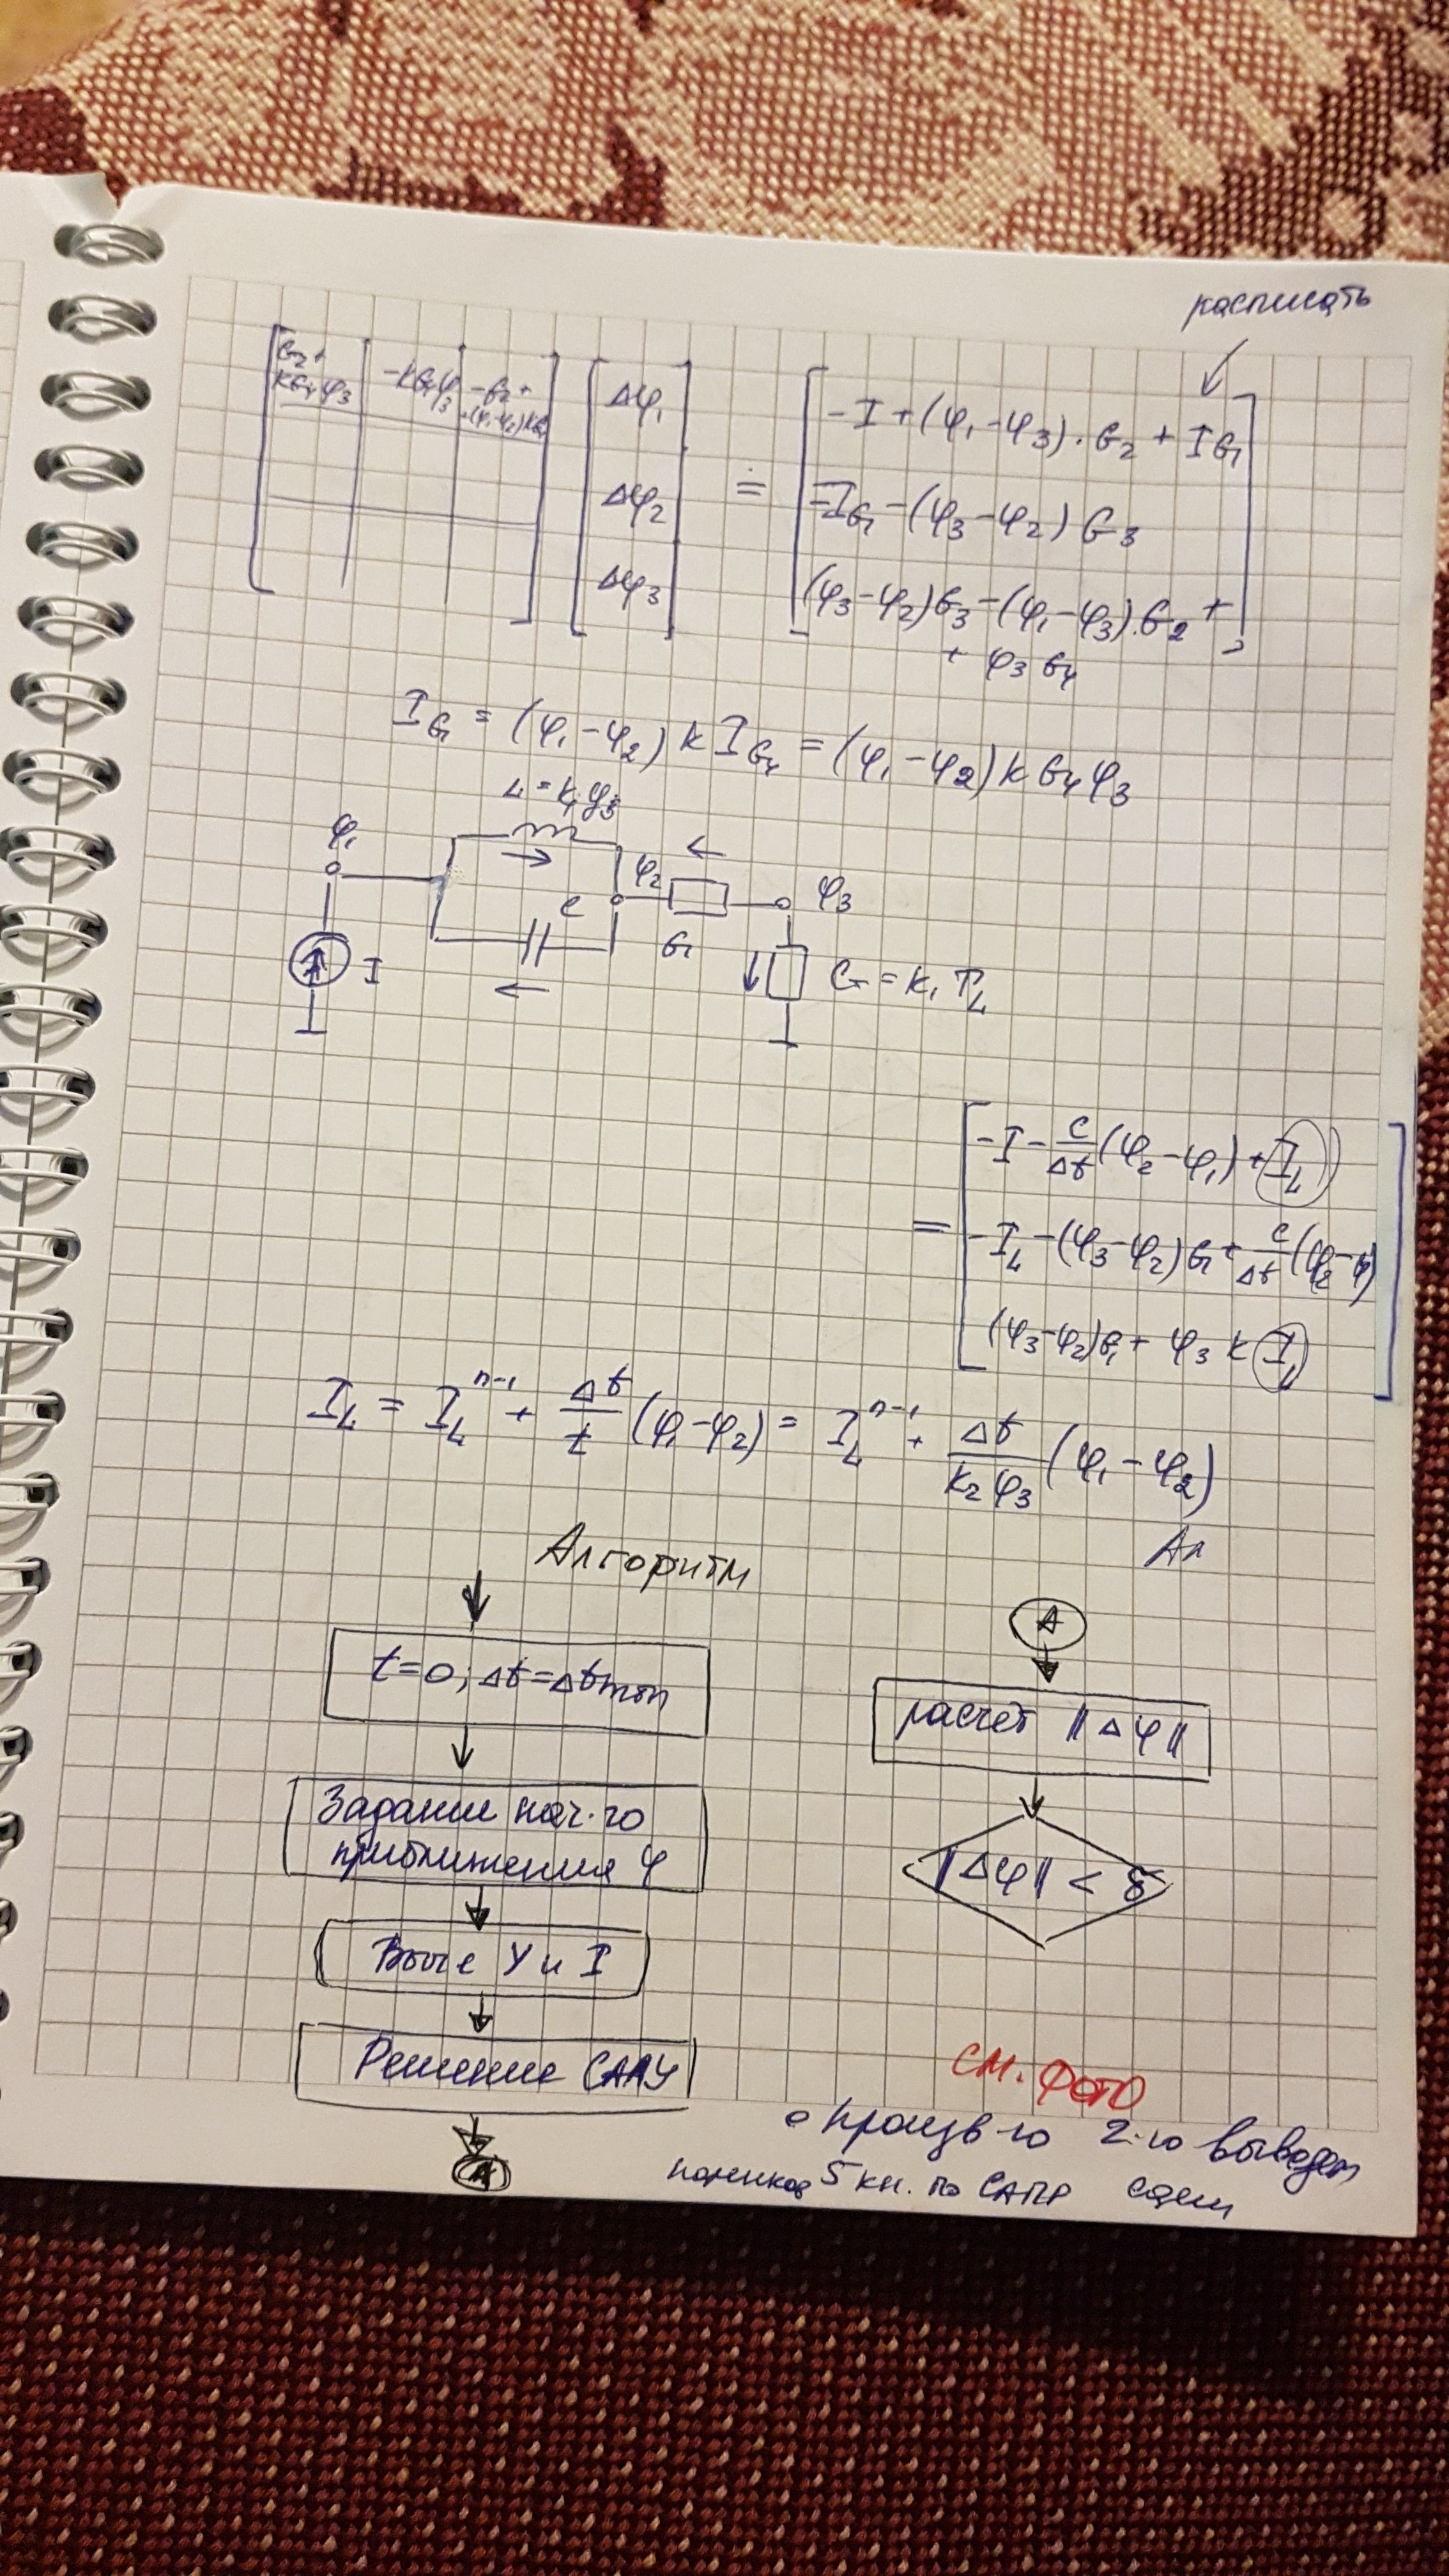 расписать
G₂ + kG₄φ₃ | -kG₄φ₃ | -G₂ +
Δφ₁
Δφ₂
Δφ₃
=
-I + (φ₁ - φ₃) · G₂ + I_G₁
-I_G₁ - (φ₃ - φ₂) G₃
(φ₃ - φ₂)G₃ - (φ₁ - φ₃) · G₂ +
+ φ₃ G₄
I_G₁ = (φ₁ - φ₂) k I_G₄ = (φ₁ - φ₂) k G₄ φ₃
φ₁
φ₂
φ₃
C
G₁
I
G = k₁ I_L
-I - C/Δt (φ₂ - φ₁) + I_L
= -I_L - (φ₃ - φ₂)G₁ + C/Δt (φ₂ - φ₁)
(φ₃ - φ₂)G₁ + φ₃ k I_L
I_L = I_L^(n-1) + Δt/t (φ₁ - φ₂) = I_L^(n-1) + Δt/(k₂φ₃) (φ₁ - φ₂)
Ал
Алгоритм
t=0; Δt=Δtmin
Задание нач-го
приближения φ
Выч-е У и I
Решение СЛАУ
А
А
расчет ||Δφ||
||Δφ|| < δ
см. фото
произв-ю 2-ю выведем
Норенков 5 кн. по САПР